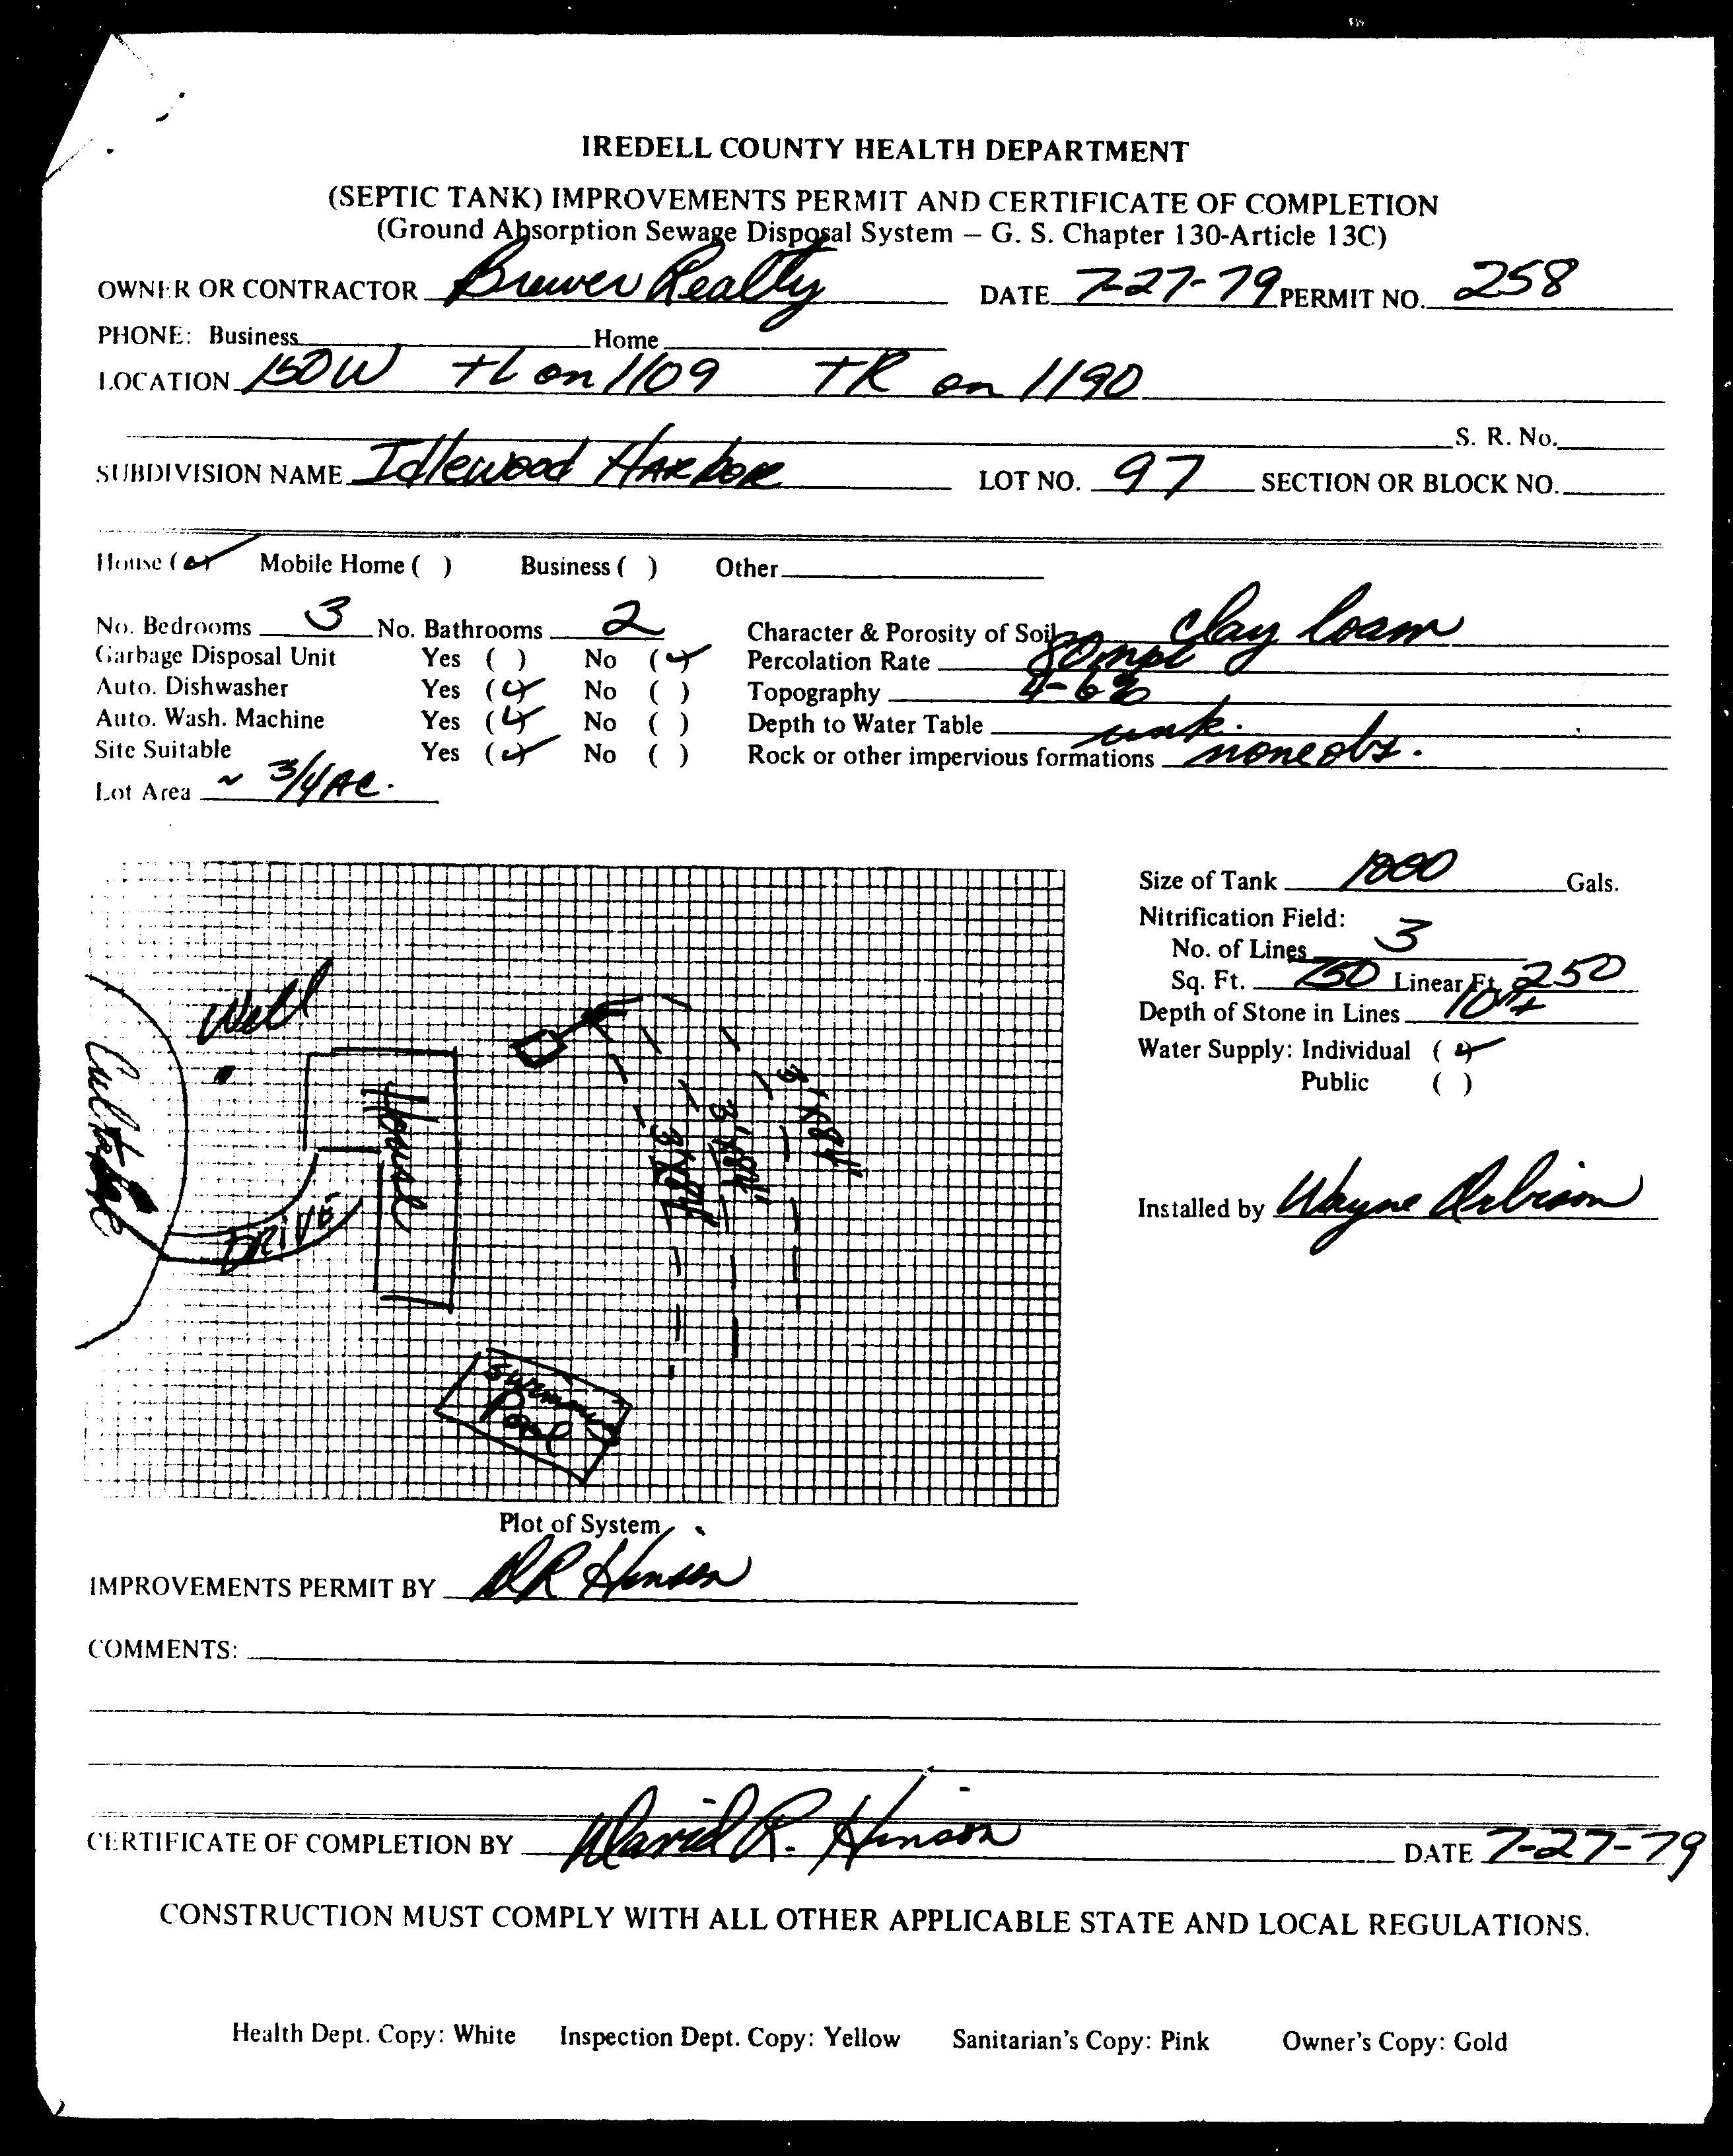 IREDELL COUNTY HEALTH DEPARTMENT
(SEPTIC TANK) IMPROVEMENTS PERMIT AND CERTIFICATE OF COMPLETION
(Ground Absorption Sewage Disposal System – G. S. Chapter 130-Article 13C)
OWNER OR CONTRACTOR Brewer Realty DATE 7-27-79 PERMIT NO. 258
PHONE: Business Home
LOCATION 150W TL on 1109 TR on 1190
S. R. No.
SUBDIVISION NAME Idlewood Harbor LOT NO. 97 SECTION OR BLOCK NO.
House (✓) Mobile Home ( ) Business ( ) Other
No. Bedrooms 3 No. Bathrooms 2 Character & Porosity of Soil clay loam
Garbage Disposal Unit Yes ( ) No (✓) Percolation Rate 80 mpi
Auto. Dishwasher Yes (✓) No ( ) Topography 4-6%
Auto. Wash. Machine Yes (✓) No ( ) Depth to Water Table unk.
Site Suitable Yes (✓) No ( ) Rock or other impervious formations none obs.
Lot Area ~ 3/4 AC.
Size of Tank 1000 Gals.
Nitrification Field:
No. of Lines 3
Sq. Ft. 750 Linear Ft. 250
Depth of Stone in Lines
Water Supply: Individual (✓)
Public ( )
Installed by Wayne
Well
Culdesac
House
DRIVE
3'X84'
3'X84'
3'X84'
Swimming
Pool
Plot of System
IMPROVEMENTS PERMIT BY DR Hinson
COMMENTS:
CERTIFICATE OF COMPLETION BY David R. Hinson DATE 7-27-79
CONSTRUCTION MUST COMPLY WITH ALL OTHER APPLICABLE STATE AND LOCAL REGULATIONS.
Health Dept. Copy: White Inspection Dept. Copy: Yellow Sanitarian's Copy: Pink Owner's Copy: Gold